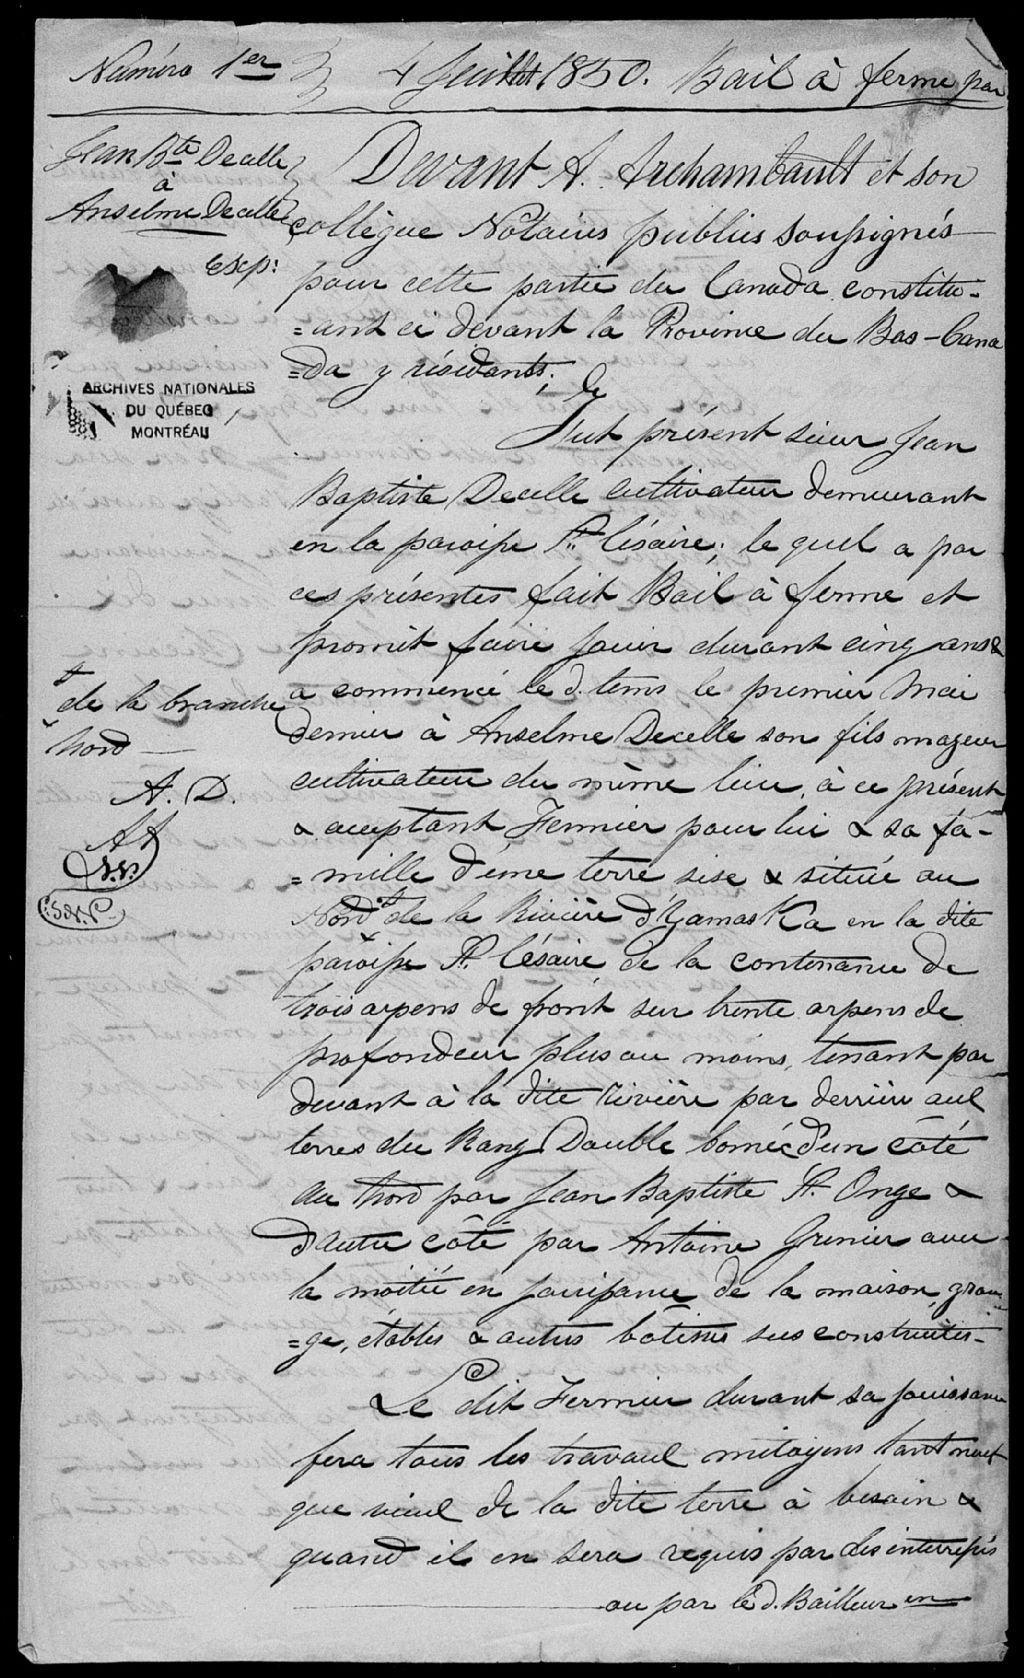 Numéro 1er 4 Juillet 1850. Bail à ferme par
Jean Bte Decelle
à
Anselme Decelle
Exp:
ARCHIVES NATIONALES
DU QUÉBEC
MONTRÉAL
Devant A. Archambault et son
collègue Notaires publics soussignés
pour cette partie du Canada constitu-
=ant ci devant la Province du Bas-Cana
=da y résidants;
Fut présent sieur Jean
Baptiste Decelle cultivateur demeurant
en la paroisse St. Césaire; le quel a par
ces présentes fait Bail à ferme et
promit faire jouir durant cinq ans &
a commencé le d. tems le premier Mai
dernier à Anselme Decelle son fils majeur
cultivateur du même lieu, à ce présent
& acceptant, Fermier pour lui & sa fa-
=mille d'une terre sise & située au
Nord de la Rivière d'Yamaska en la dite
paroisse St. Césaire de la contenance de
trois arpens de front sur trente arpens de
profondeur plus ou moins, tenant par
devant à la dite rivière par derrière aux
terres du Rang Double bornée d'un côté
au Nord par Jean Baptiste St. Onge &
d'autre côté par Antoine Grenier avec
la moitié en jouissance de la maison, gran
=ge, étables & autres bâtisses sus construites-
Le dit Fermier durant sa jouissance
fera tous les travaux mitoyens tant neuf
que vieux de la dite terre à besoin &
quand il en sera requis par les interressés
ou par le d. Bailleur en
de la branche
Nord
A. D.
A A